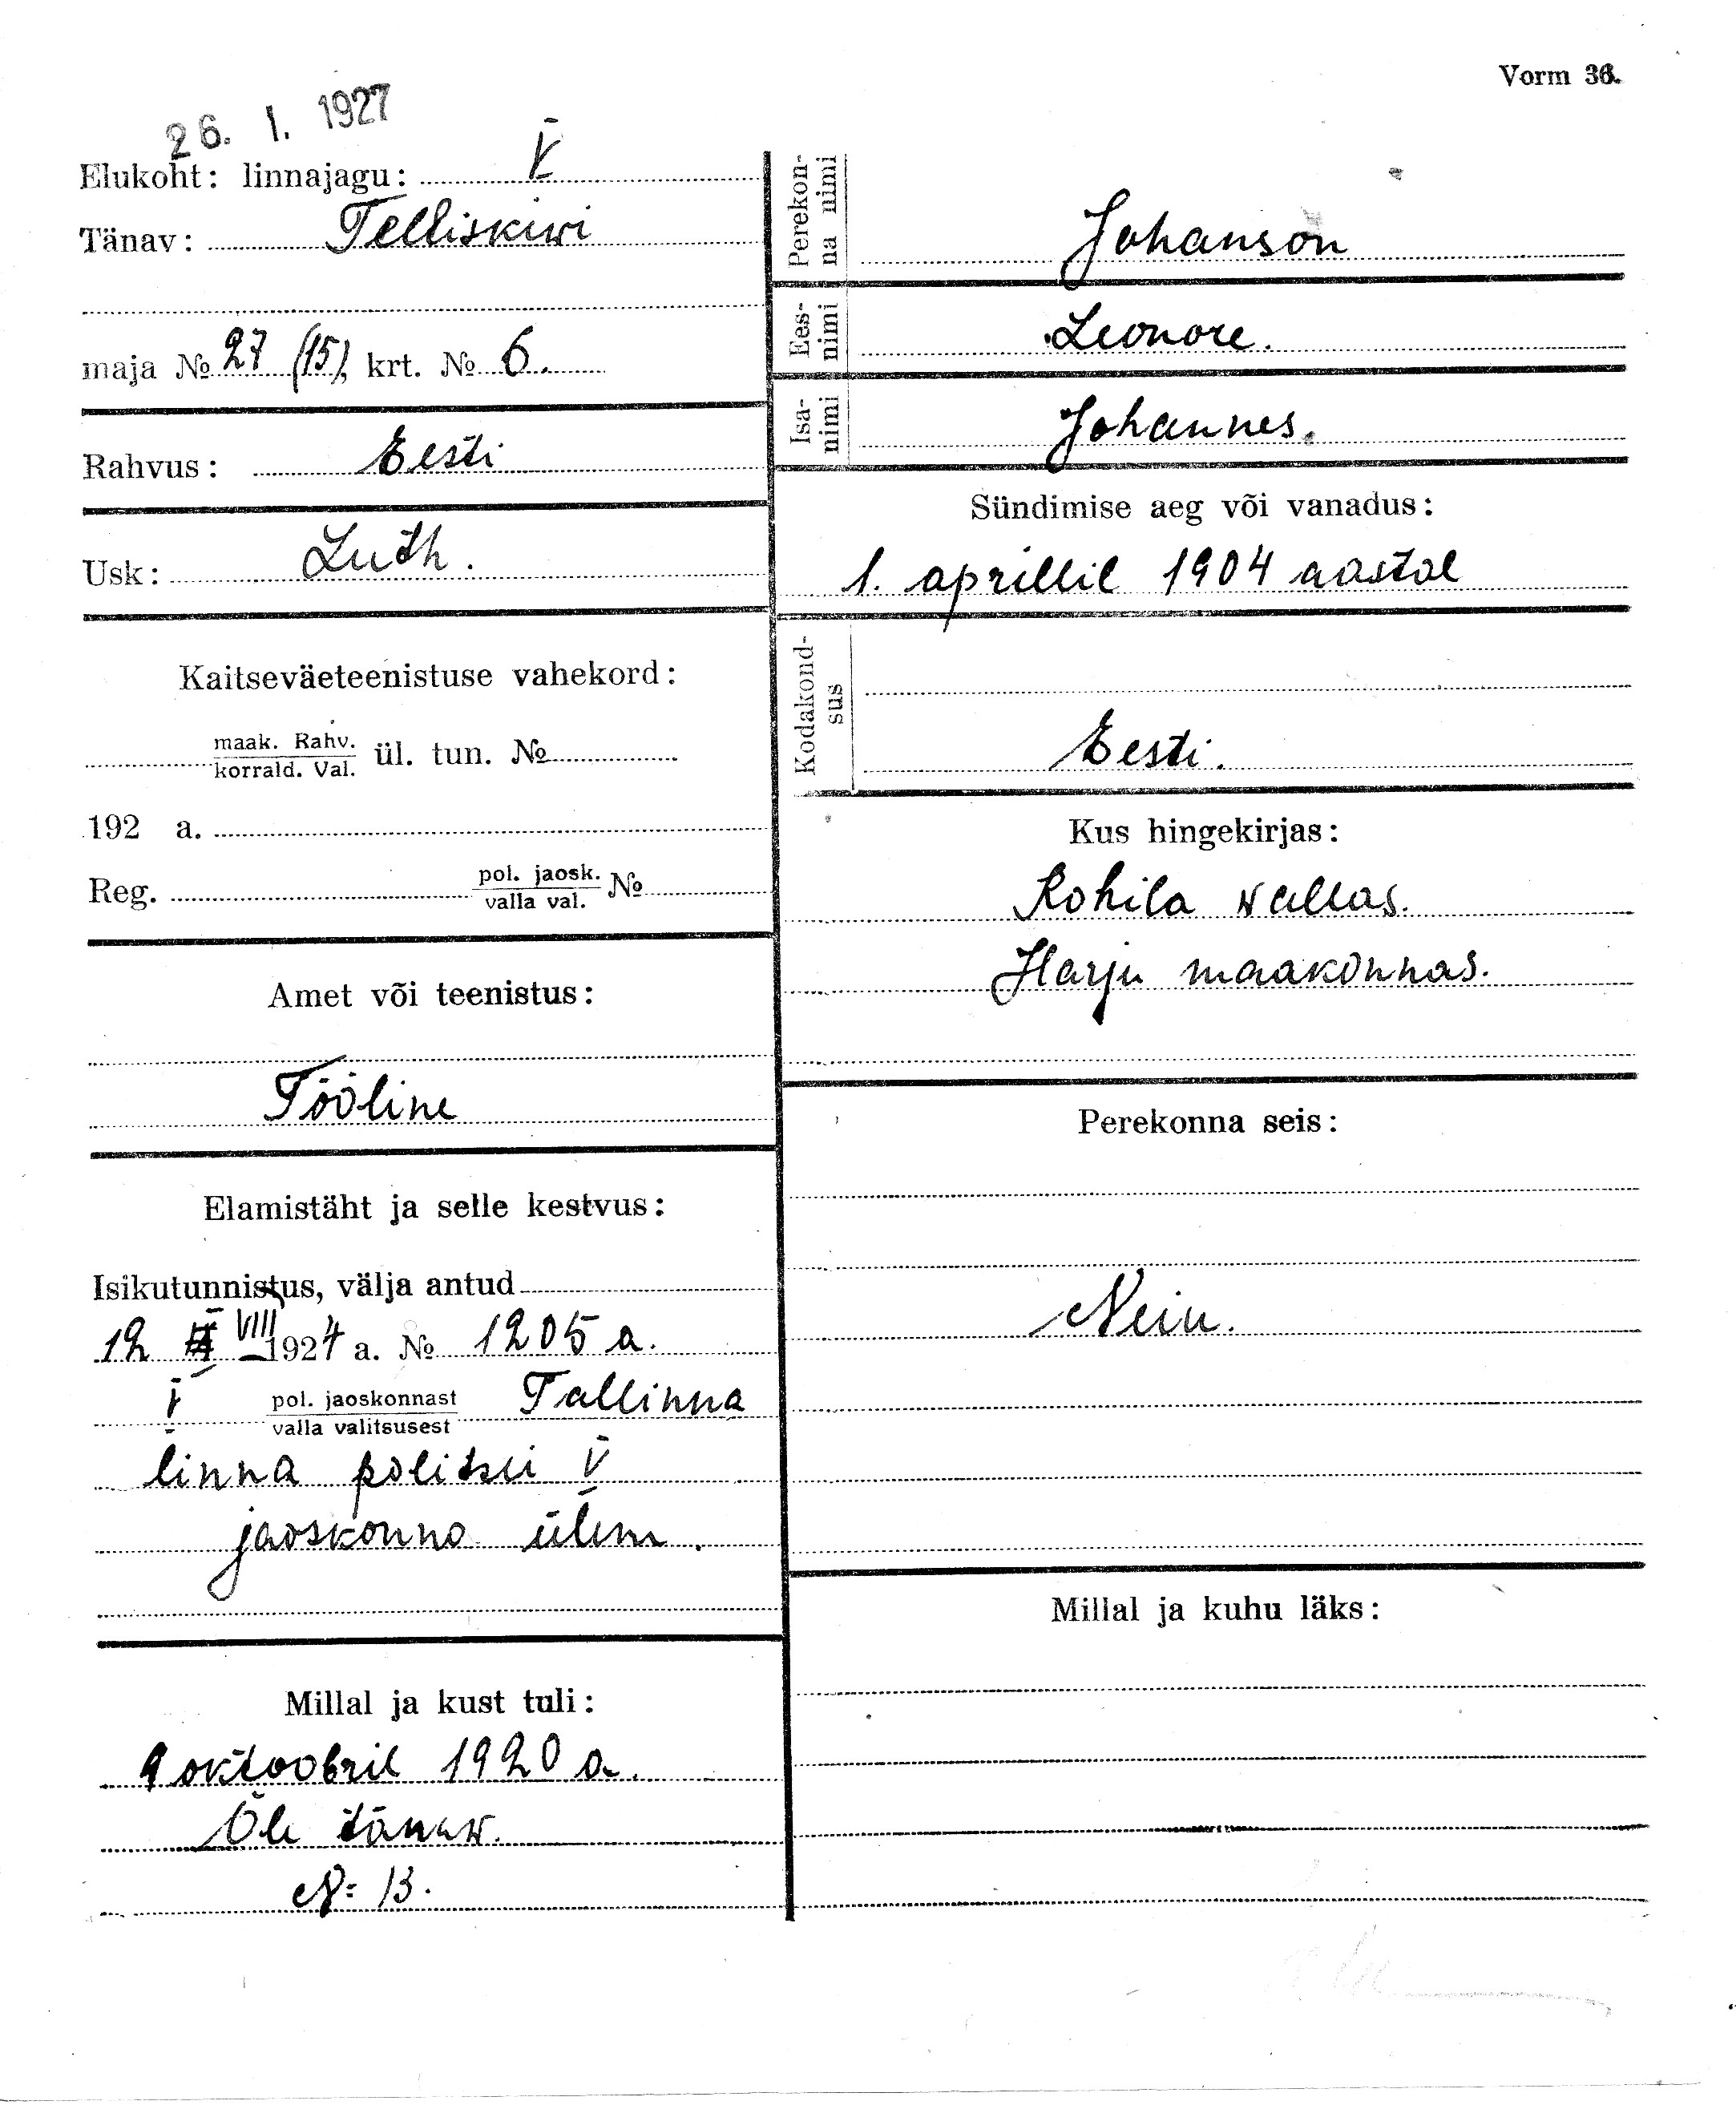 Vorm 36.
26. I. 1927
Elukoht: linnajagu: V
Tänav: Telliskiwi
maja № 27 (15), krt. № 6.
Rahvus: Eesti
Usk: Luth.
Kaitseväeteenistuse vahekord:
maak. Rahv.
korrald. Val. ül. tun. №
192 a.
Reg. pol. jaosk. №
valla val.
Amet või teenistus:
Tööline
Elamistäht ja selle kestvus:
Isikutunnistus, välja antud
12 VIII 1924 a. № 1205 a.
V pol. jaoskonnast Tallinna
valla valitsusest
linna politsei V
jaoskonna ülem.
Millal ja kust tuli:
9 oktoobril 1920 a.
Õle tänaw.
N: 13.
Perekonna nimi Johanson
Eesnimi Leonore.
Isanimi Johannes.
Sündimise aeg või vanadus:
1. aprillil 1904 aastal
Kodakondsus
Eesti.
Kus hingekirjas:
Kohila wallas.
Harju maakonnas.
Perekonna seis:
Neiu.
Millal ja kuhu läks: